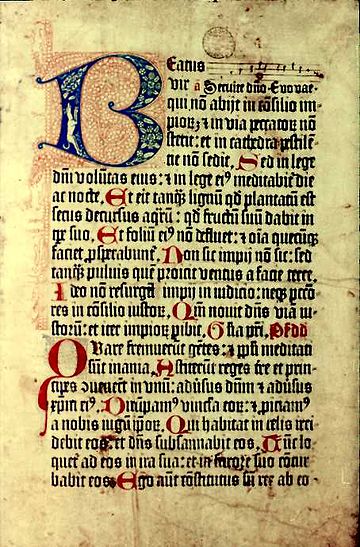 Beatus
vir a Seruite dno Euovae
qui nō abijt in cōsilio im⸗
pioꝝ ⁊ in via peccatoꝝ nō
stetit: et in cathedra pestilē⸗
tie nō sedit, Sed in lege
dn̄i volūtas eius: ⁊ in lege eiꝰ meditabit̄ die
ac nocte, Et erit tanqȝ lignū qd plantatū est
secus decursus aqꝝ: qd fructū suū dabit in
tꝑe suo, Et foliū eiꝰ nō defluet: ⁊ oīa quecūqȝ
faciet ꝓsperabunt̄, Non sic impij nō sic: sed
tanqȝ puluis quē proicit ventus a facie terre,
Ideo nō resurgūt impij in iudicio: neqȝ pctō⸗
res in cōsilio iustoꝝ, Qm̄ nouit dn̄s viā iu⸗
stoꝝ: et iter impioꝝ ꝑibit, Gl̄a pr̄i,
Quare fremuerūt gētes: ⁊ ppl̄i meditati
sūt inania, Astiterūt reges tre et prin⸗
cipes ꝯuenerūt in vnū: aduersus dn̄m ⁊ aduersus
xpm̄ eiꝰ, Dirūpamꝰ vincula eoꝝ: ⁊ ꝓiciamꝰ
a nobis iugū ipoꝝ, Qui habitat in celis irri
debit eos: et dn̄s subsannabit eos, Tūc lo⸗
quet̄ ad eos in ira sua: et in furore suo cōtur
babit eos, Ego aut̄ cōstitutus sū rex ab eo